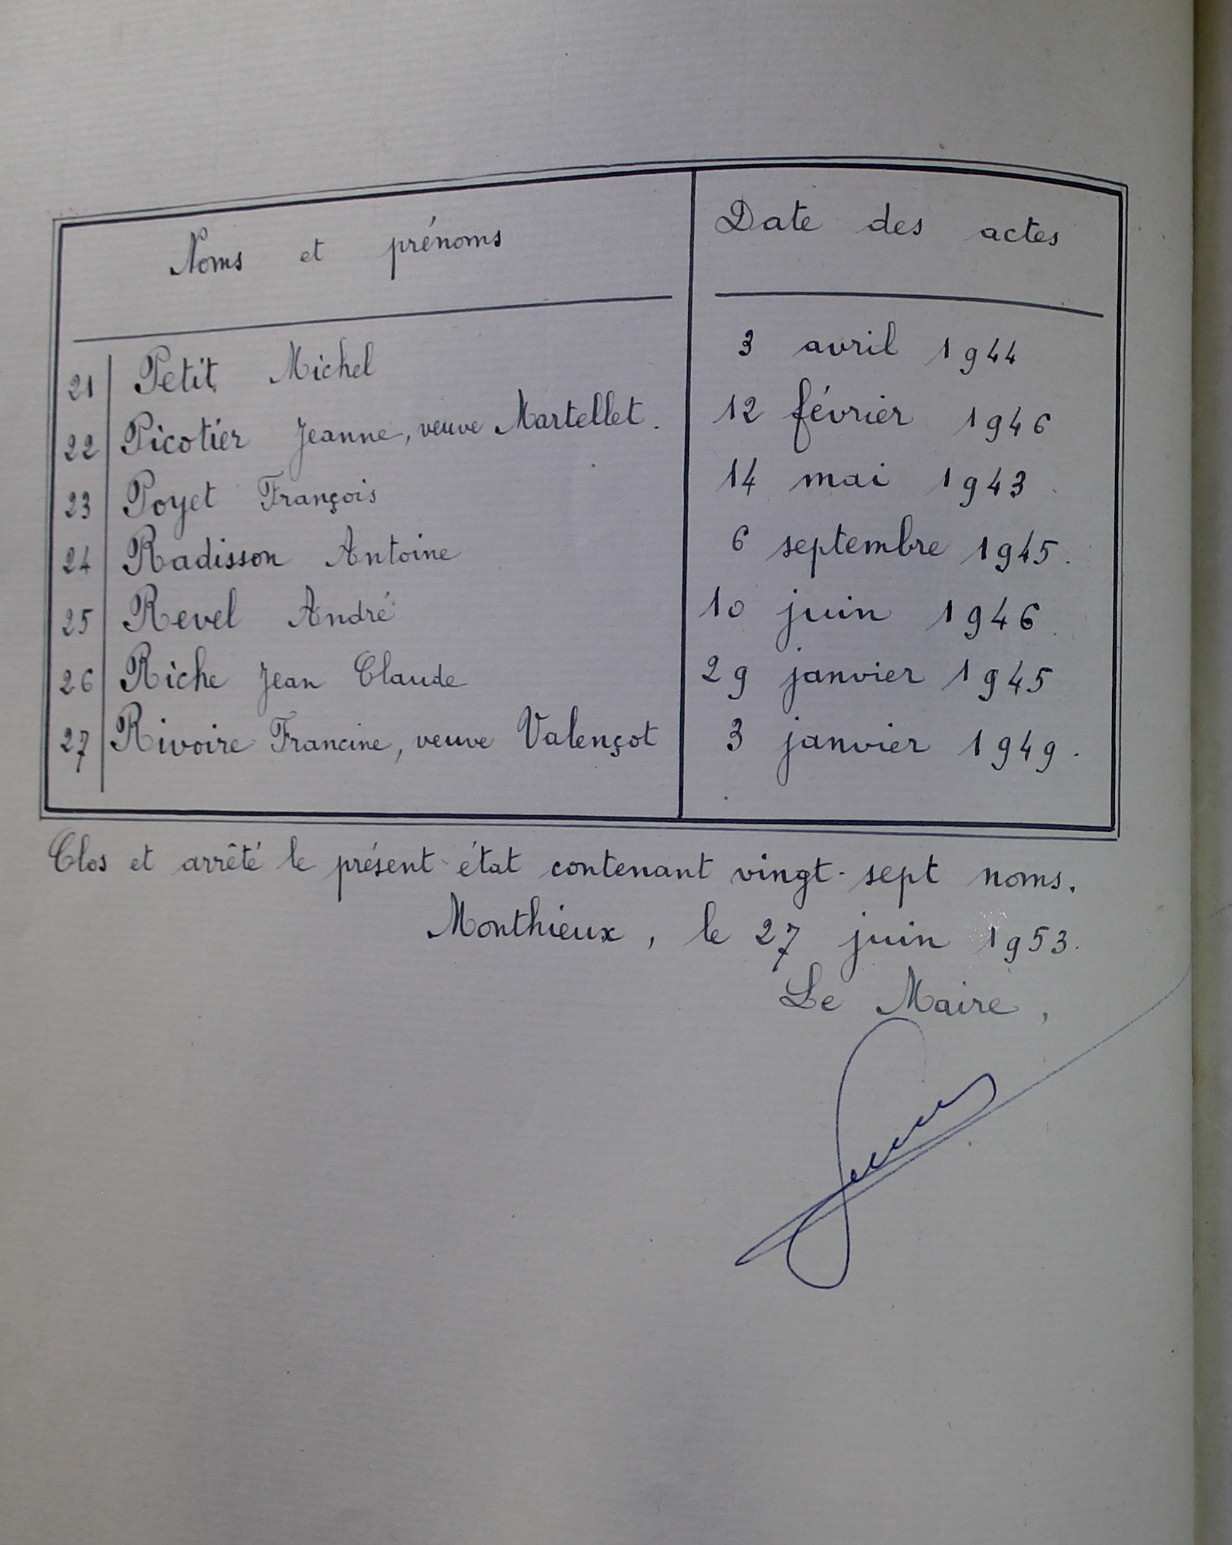 Noms et prénoms Date des actes
21 Petit Michel 3 avril 1944
22 Picotier Jeanne, veuve Martellet. 12 février 1946
23 Poyet François 14 mai 1943
24 Radisson Antoine 6 septembre 1945.
25 Revel André 10 juin 1946
26 Riche Jean Claude 29 janvier 1945
27 Rivoire Francine, veuve Valençot 3 janvier 1949.
Clos et arrêté le présent état contenant vingt-sept noms.
Monthieux, le 27 juin 1953.
Le Maire,